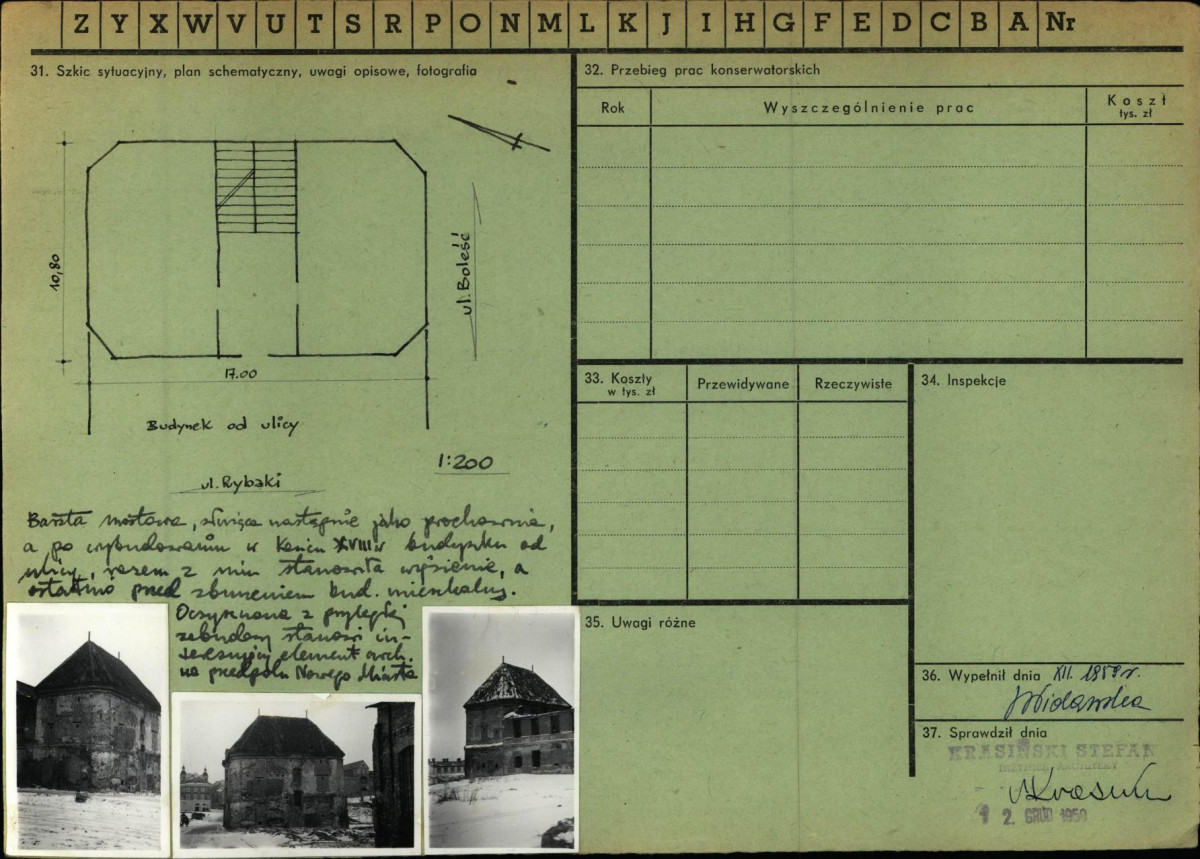 Z Y X W V U T S R P O N M L K J I H G F E D C B A Nr
31. Szkic sytuacyjny, plan schematyczny, uwagi opisowe, fotografia
10,80
17.00
ul. Boleść
Budynek od ulicy
1:200
ul. Rybaki
Baszta mostowa, służąca następnie jako prochownia,
a po wybudowaniu w końcu XVIII w budynku od
ulicy, razem z nim stanowiła więzienie, a
ostatnio przed zburzeniem bud. mieszkalny.
Oczyszczona z przyległej
zabudowy stanowi in-
teresujący element arch.
na przedpolu Nowego Miasta
32. Przebieg prac konserwatorskich
Rok
Wyszczególnienie prac
Koszt
tys. zł
33. Koszty
w tys. zł
Przewidywane
Rzeczywiste
34. Inspekcje
35. Uwagi różne
36. Wypełnił dnia XII. 1959 r.
37. Sprawdził dnia
KRASIŃSKI STEFAN
INŻYNIER ARCHITEKT
1 2. GRUD 1959